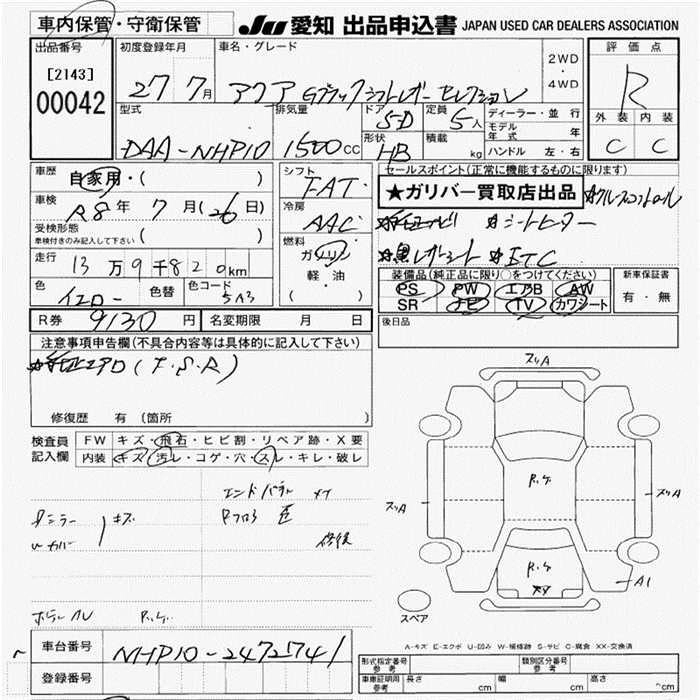 車内保管・守衛保管
JU 愛知 出品申込書 JAPAN USED CAR DEALERS ASSOCIATION
出品番号 初度登録年月 車名・グレード 評価点
[2143]
00042
27 7月 アクア Gブラックソフトレザーセレクション
2WD
・
4WD
R
型式 排気量 ドア 定員 ディーラー・並行
DAA-NHP10 1500cc 5D 5人
モデル年式 年
形状 積載 ハンドル 左・右
HB kg
外装 内装
C C
車歴 自家用・( )
車検 R8年 7月(26日)
受検形態
車検付きのみ記入して下さい ( )
走行 13万9千820km
色 イエロー 色替 色コード 5A3
シフト FAT
冷房 AAC
燃料 ガソリン
軽・油
・( )
セールスポイント(正常に機能するものに限ります)
★ガリバー買取店出品 ☆クルーズコントロール
☆純正ナビ ☆シートヒーター
☆黒レザーシート ☆ETC
装備品(純正品に限り○をつけてください) 新車保証書
PS PW エアB AW 有・無
SR ナビ TV カワシート
R券 9130円 名変期限 月 日
後日品
注意事項申告欄(不具合内容等は具体的に記入して下さい)
☆純正エアロ(F.S.R)
修復歴 有(箇所 )
検査員 FW キズ・飛石・ヒビ割・リペア跡・X要
記入欄 内装 キズ・汚レ・コゲ・穴・スレ・キレ・破レ
キズ
カバー
修後
車台番号 NHP10-2472741
登録番号
スリA
スリA
スリA
A1
スペア
A-キズ E-エクボ U-凹み W-補修跡 S-サビ C-腐食 XX-交換済
形式指定番号 参考 類別区分番号 参考
車庫証明用 参考 長さ cm 幅 cm 高さ cm